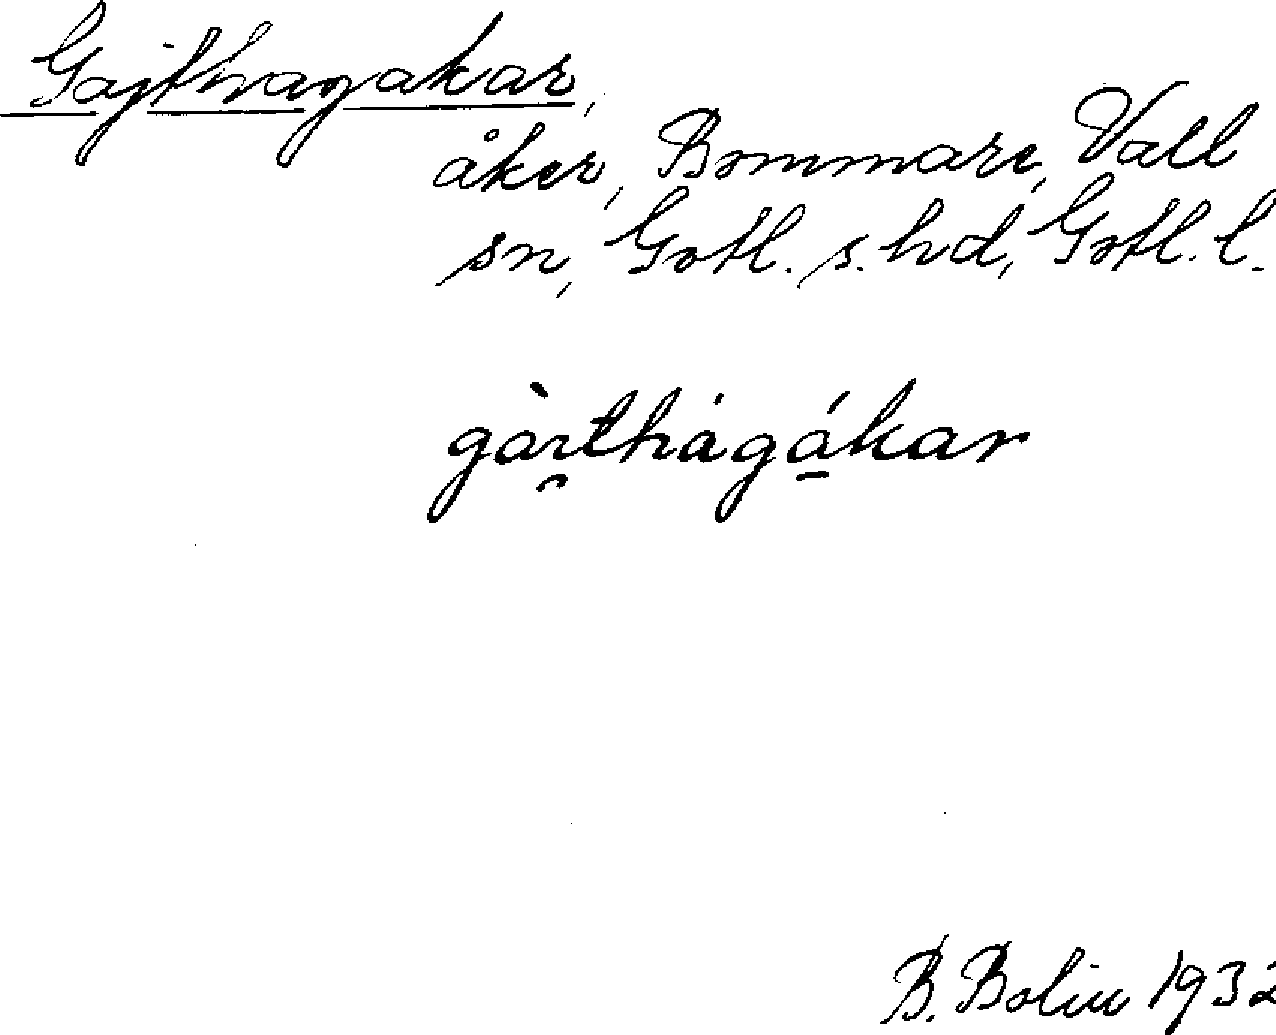 Gajthagakar,
åker, Bommare, Vall
sn, Gotl. s. hd, Gotl. l.
B. Bolin 1932